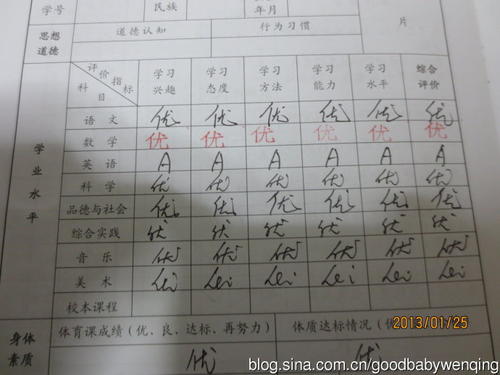 学号 民族 年月 片
思想道德 道德认知 行为习惯
学业水平
评价指标 科目 学习兴趣 学习态度 学习方法 学习能力 学习水平 综合评价
语文 优 优 优 优 优 优
数学 优 优 优 优 优 优
英语 A A A A A A
科学 优 优 优 优 优 优
品德与社会 优 优 优 优 优 优
综合实践 优 优 优 优 优 优
音乐 优 优 优 优 优 优
美术
校本课程
身体素质 体育课成绩(优、良、达标、再努力) 体质达标情况(优
优 优
2013/01/25
blog.sina.com.cn/goodbabywenqing